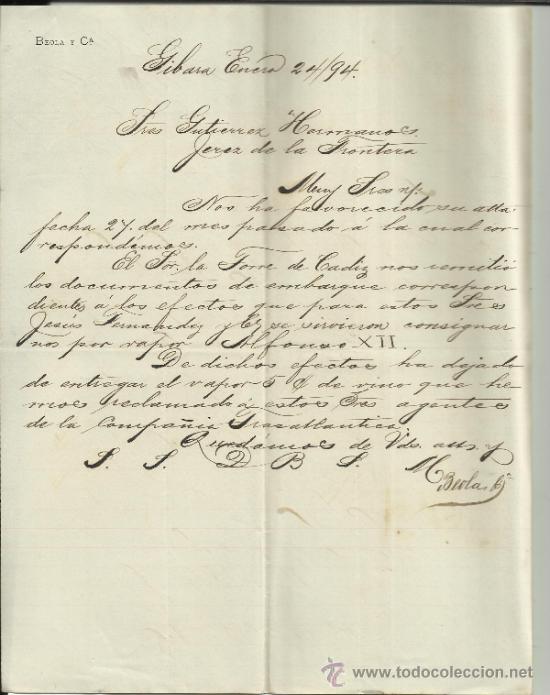 BEOLA Y Cª
Gibara Enero 24/94.
Sres Gutierrez Hermanos.
Jerez de la Frontera
Muy Sres ns/.
Nos ha favorecido su atta.
fecha 27. del mes pasado á la cual cor-
respondémos.
El Sor. la Torre de Cadiz nos remitió
los documentos de embarque correspon-
dientes á los efectos que para estos Sres
Jesús Fernandez y Cª se sirvieron consignar
nos por vapor Alfonso XII.
De dichos efectos ha dejado
de entregar el vapor 5 de vino que he-
mos reclamado á estos Sres agentes
de la Compañia Trasatlantica.
Quedámos de Vds. atts. y
S. S. Q B S. M
Beola y Cª
www.todocoleccion.net